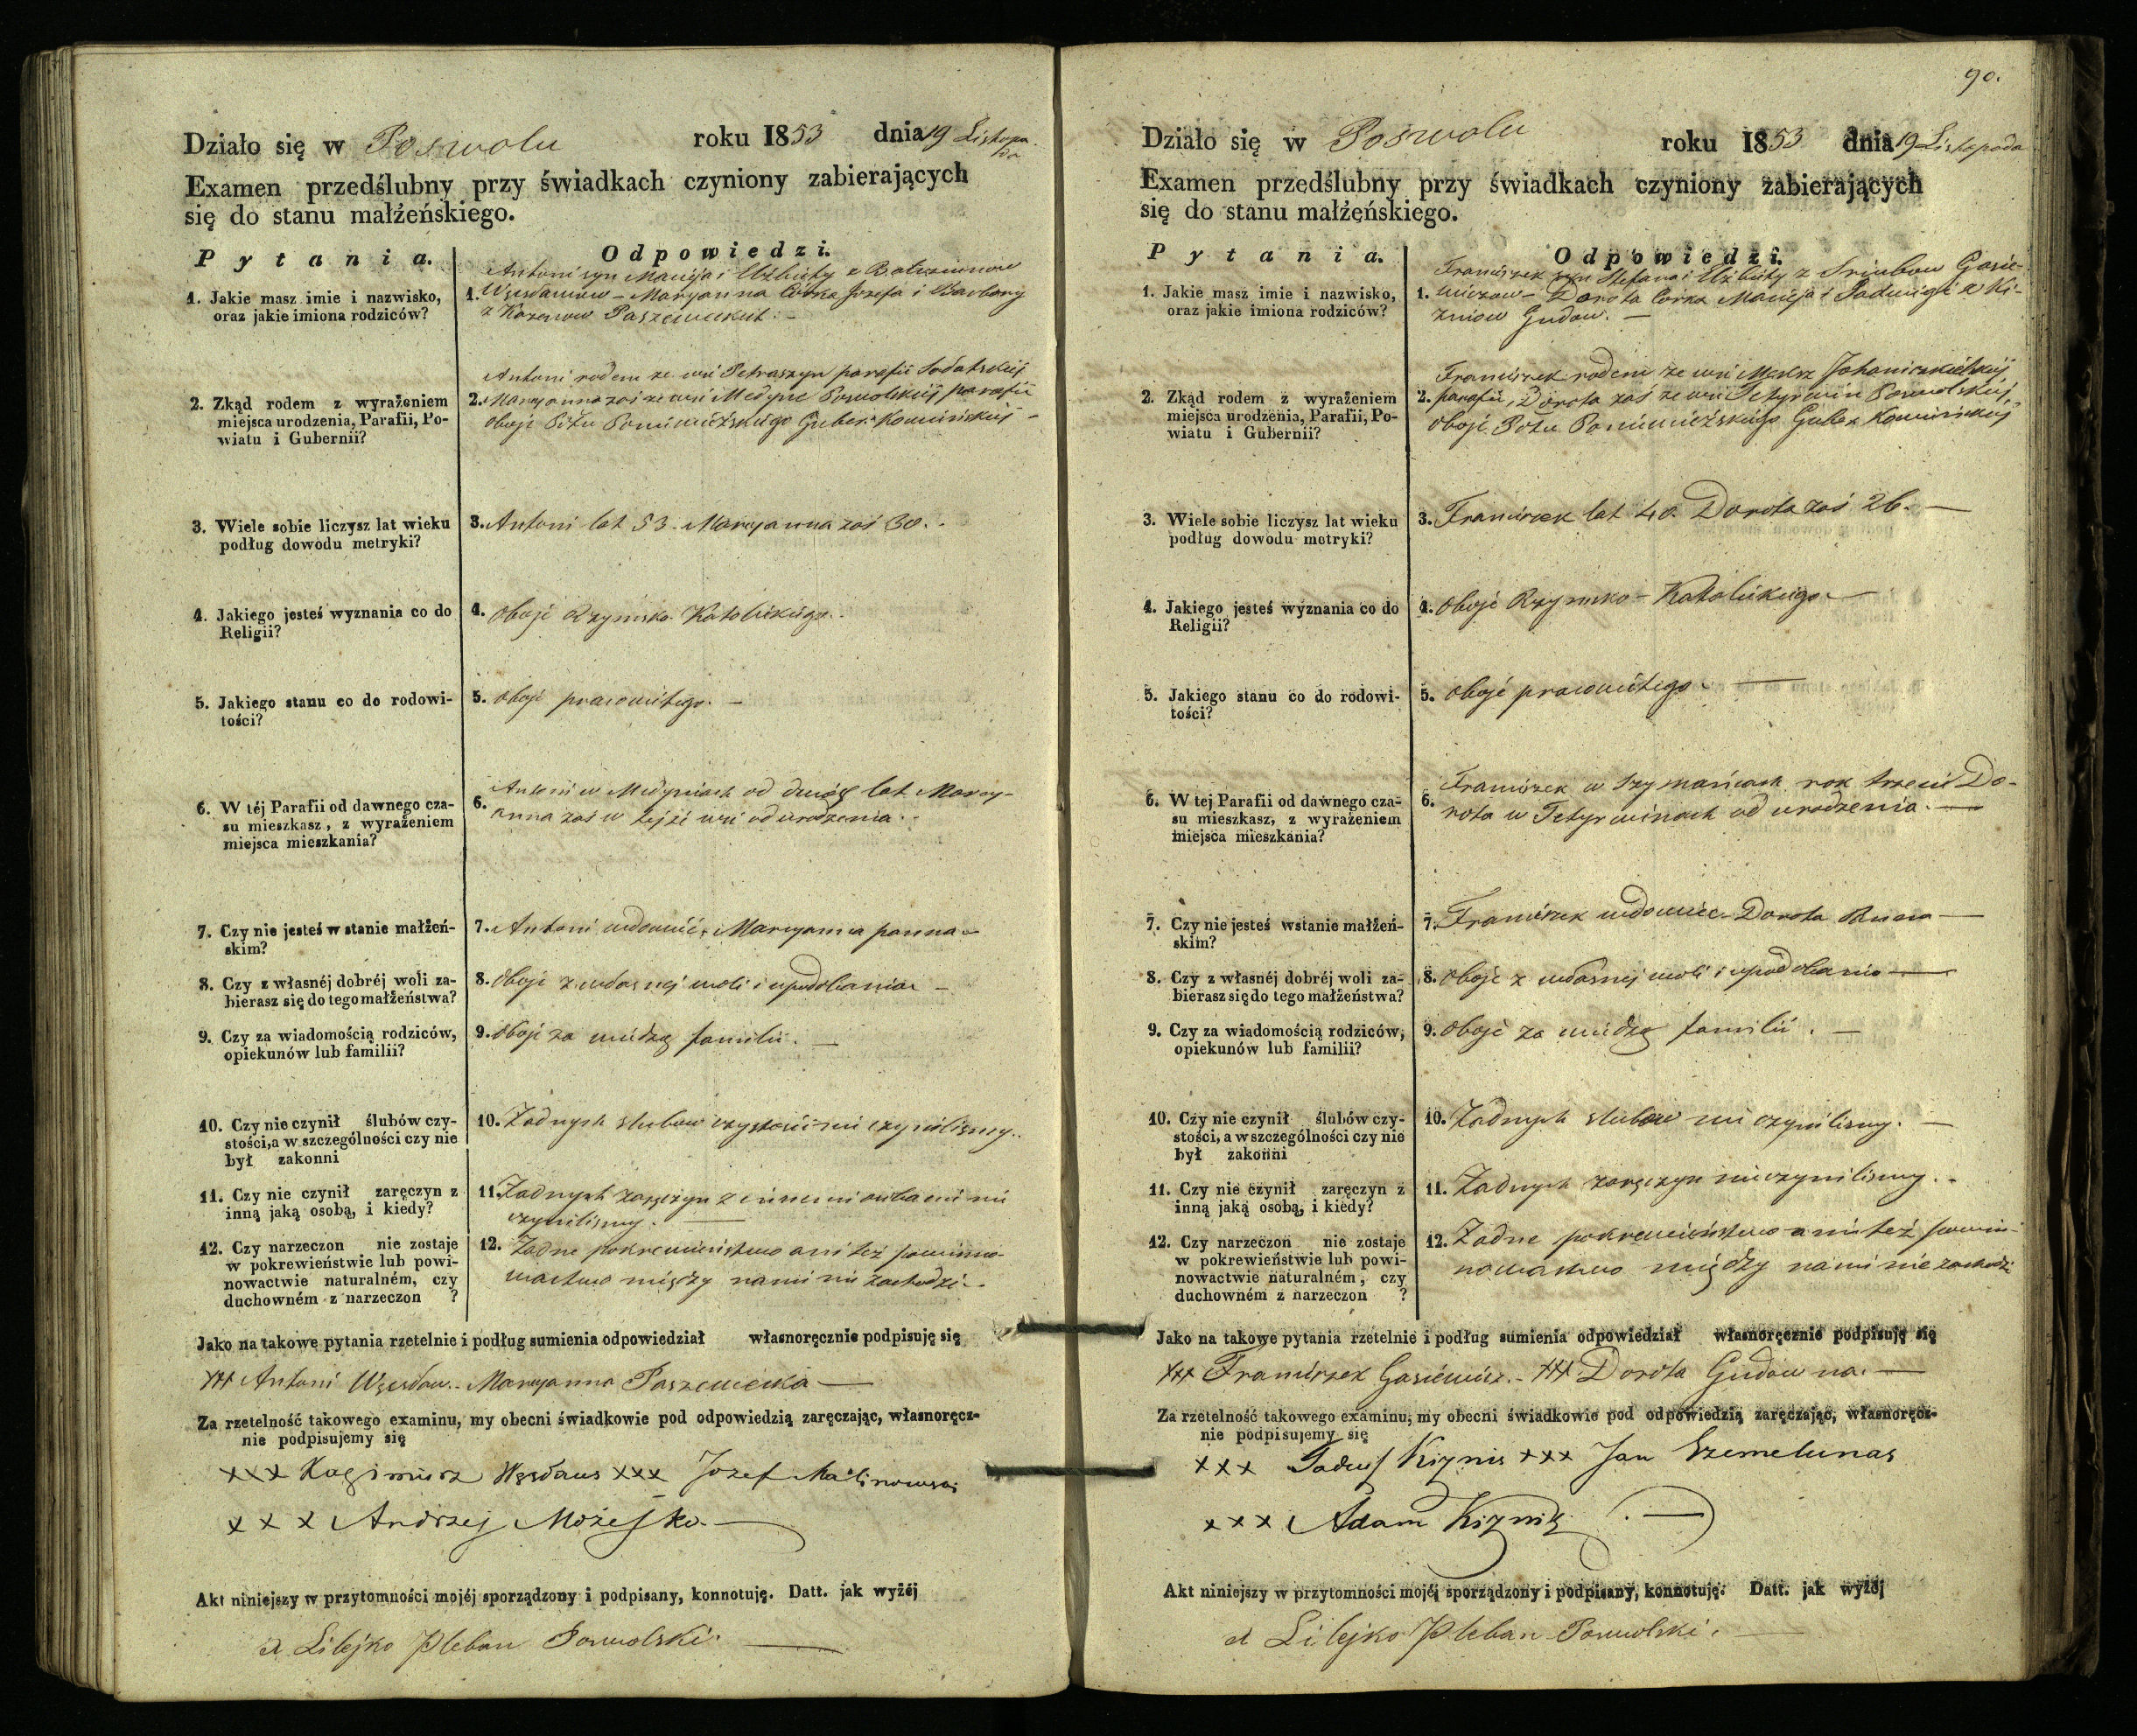 Działo się w Poswolu roku 1853 dnia 19 Listopa-
da
Examen przedślubny przy świadkach czyniony zabierających
się do stanu małżeńskiego.
Pytania. Odpowiedzi.
1. Jakie masz imie i nazwisko,
oraz jakie imiona rodziców?
1. Antoni syn Macieja i Elżbiety z
Maryanna Córka Józefa i Barbary
z
2. Zkąd rodem z wyrażeniem
miejsca urodzenia, Parafii, Po-
wiatu i Gubernii?
Antoni rodem ze wsi Petraszyn parafii
2. Maryanna zaś ze wsi Medyne Poswolskiej parafii
oboje Pttu Poniewieżskiego Guber. Kowieńskiej -
3. Wiele sobie liczysz lat wieku
podług dowodu metryki?
3. Antoni lat 53. Maryanna zaś 30. -
4. Jakiego jesteś wyznania co do
Religii?
4. Oboje Rzymsko Katolickiego. -
5. Jakiego stanu co do rodowi-
tości?
5. Oboje prawowitego. -
6. W téj Parafii od dawnego cza-
su mieszkasz, z wyrażeniem
miejsca mieszkania?
6. Antoni w Medyniach od dwóch lat Mary-
anna zaś w tejże wsi od urodzenia. -
7. Czy nie jesteś w stanie małżeń-
skim?
7. Antoni wdowiec, Maryanna panna -
8. Czy z własnéj dobréj woli za-
bierasz się do tego małżeństwa?
8. Oboje z własnej woli i upodobania -
9. Czy za wiadomością rodziców,
opiekunów lub familii?
9. Oboje za wiedzą familii. -
10. Czy nie czynił ślubów czy-
stości, a w szczególności czy nie
był zakonni
10. Żadnych slubow czystości nie czynilismy. -
11. Czy nie czynił zaręczyn z
inną jaką osobą, i kiedy?
11. Żadnych zaręczyn z innemi osobami nie
czynilismy. -
12. Czy narzeczon nie zostaje
w pokrewieństwie lub powi-
nowactwie naturalném, czy
duchowném z narzeczon ?
12. Żadne pokrewieństwo ani też powino-
wactwo między nami nie zachodzi -
Jako na takowe pytania rzetelnie i podług sumienia odpowiedział własnoręcznie podpisuję się
xxx Antoni - Maryanna Paszewicka -
Za rzetelność takowego examinu, my obecni świadkowie pod odpowiedzią zaręczając, własnoręcz-
nie podpisujemy się
xxx Kazimierz xxx Jozef Malinowski
xxx Andrzej Możejko. -
Akt niniejszy w przytomności mojéj sporządzony i podpisany, konnotuję. Datt. jak wyżéj
A Lilejko Pleban Poswolski. -
90.
Działo się w Poswolu roku 1853 dnia 19 Listopada
Examen przedślubny przy świadkach czyniony zabierających
się do stanu małżeńskiego.
Pytania. Odpowiedzi.
1. Jakie masz imie i nazwisko,
oraz jakie imiona rodziców?
Franciszek syn Stefana i Elżbiety z Gasie-
1. wiczow - Dorota Córka Macieja i Jadwigi z Ki-
zniow Gudow. -
2. Zkąd rodem z wyrażeniem
miejsca urodzenia, Parafii, Po-
wiatu i Gubernii?
Franciszek rodem ze wsi Johaniszkielskiej
2. parafii, Dorota zaś ze wsi Tetyrwin Poswolskiej,
oboje Pttu Poniewieżskiego Guber Kowieńskiej
3. Wiele sobie liczysz lat wieku
podług dowodu metryki?
3. Franciszek lat 40. Dorota zaś 26. -
4. Jakiego jesteś wyznania co do
Religii?
4. Oboje Rzymsko-Katolickiego -
5. Jakiego stanu co do rodowi-
tości?
5. Oboje prawowitego. -
6. W tej Parafii od dawnego cza-
su mieszkasz, z wyrażeniem
miejsca mieszkania?
6. Franciszek w Szymańcach rok trzeci Do-
rota w Tetyrwinach od urodzenia. -
7. Czy nie jesteś wstanie małżeń-
skim?
7. Franciszek wdowiec Dorota -
8. Czy z własnéj dobréj woli za-
bierasz się do tego małżeństwa?
8. Oboje z własnej woli i upodobania -
9. Czy za wiadomością rodziców,
opiekunów lub familii?
9. Oboje za wiedzą familii. -
10. Czy nie czynił ślubów czy-
stości, a w szczególności czy nie
był zakonni
10. Żadnych slubow nie czynilismy. -
11. Czy nie czynił zaręczyn z
inną jaką osobą, i kiedy?
11. Żadnych zaręczyn nie czynilismy. -
12. Czy narzeczon nie zostaje
w pokrewieństwie lub powi-
nowactwie naturalném, czy
duchowném z narzeczon ?
12. Żadne pokrewieństwo ani też powi-
nowactwo między nami nie zachodzi
Jako na takowe pytania rzetelnie i podług sumienia odpowiedział własnoręcznie podpisuję się
xxx Franciszek Gasiewicz. - xxx Dorota Gudowna. -
Za rzetelność takowego examinu, my obecni świadkowie pod odpowiedzią zaręczając, własnoręcz-
nie podpisujemy się
xxx Tadeusz Kiznis xxx Jan Szemelunas
xxx Adam Kiznis. -
Akt niniejszy w przytomności mojéj sporządzony i podpisany, konnotuję. Datt. jak wyżéj
A Lilejko Pleban Poswolski. -